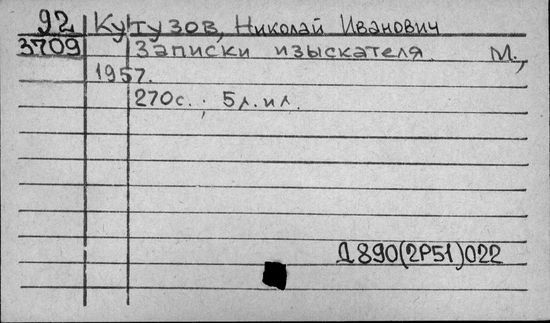 92 Кутузов, Николай Иванович
3709 Записки изыскателя М.,
1957.
270с.; 5л.ил.
Д890(2Р51)022